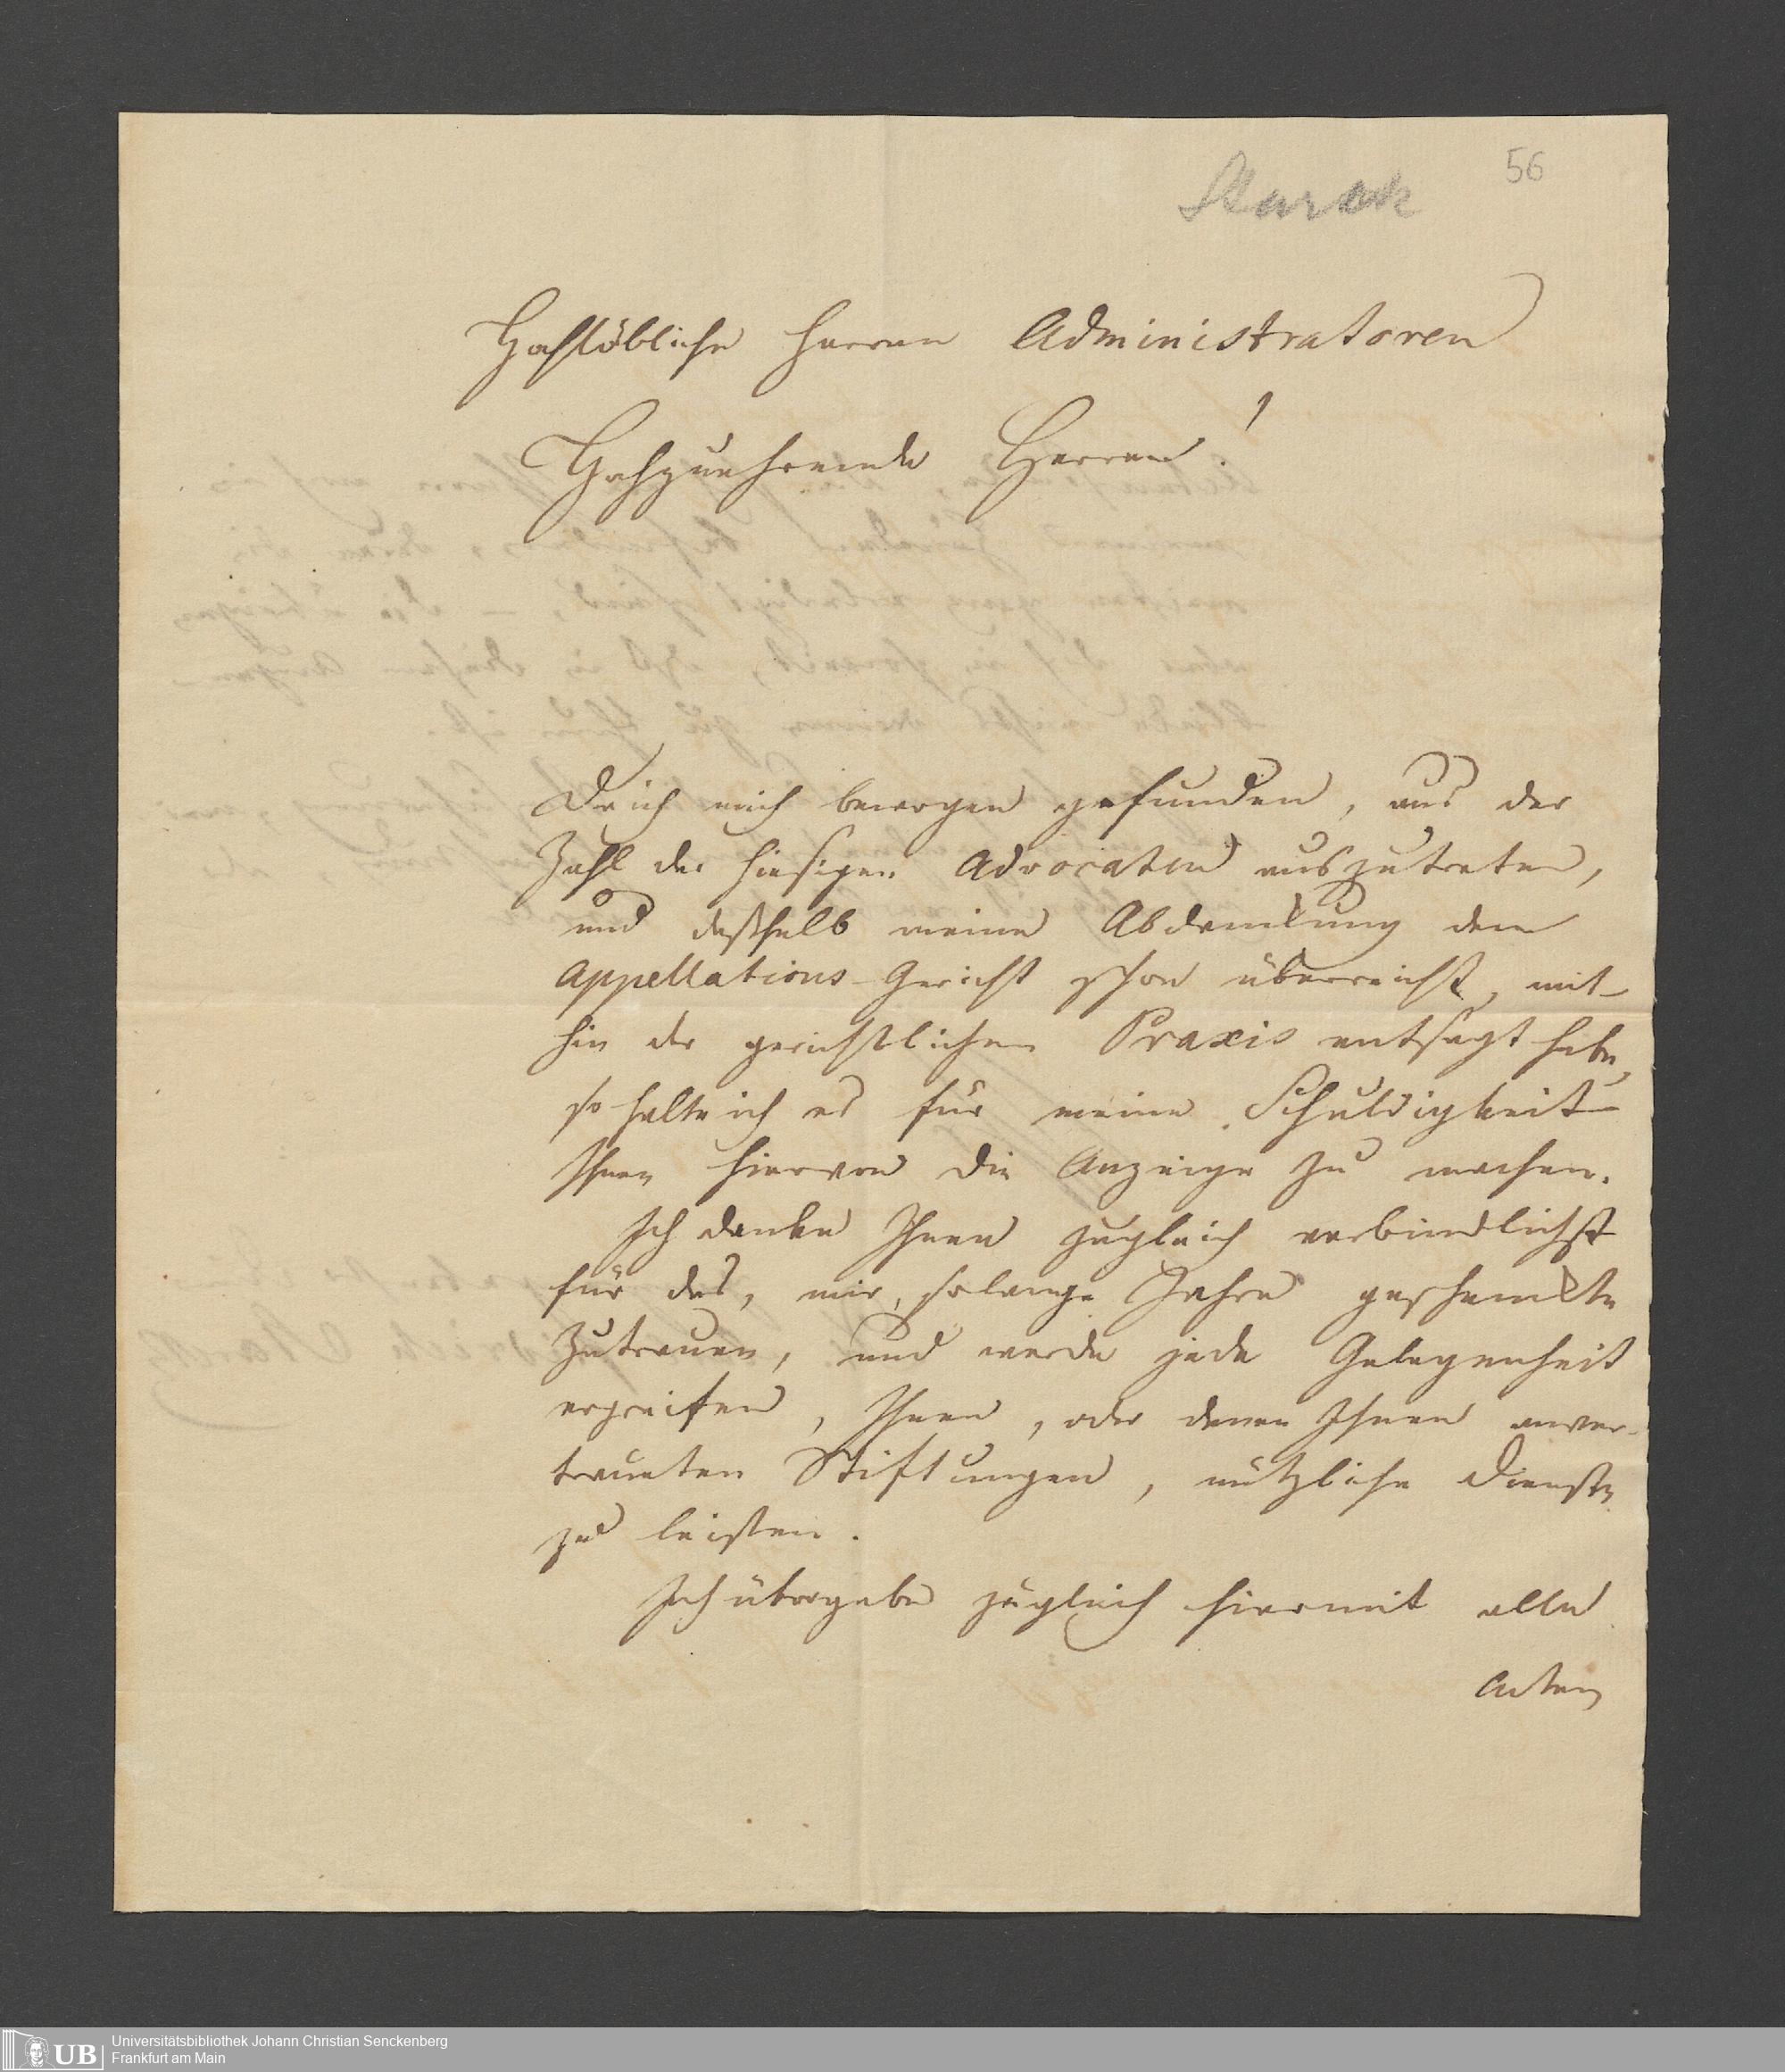 56
Hochlöbliche Herren Administratoren
Hochzuehrende Herren!
Da ich mich bewogen gefunden, aus der
Zahl der hiesigen Advocaten auszutreten,
und deßhalb meine Abdankung dem
Appellations-Gericht schon überreicht, mit-
hin der gerichtlichen Praxis entsagt habe,
so halte ich es für meine Schuldigkeit
Ihnen hiervon die Anzeige zu machen.
Ich danke Ihnen zugleich verbindlichst
für das, mir, solange Jahre geschenkte
Zutrauen, und werde jede Gelegenheit
ergreifen, Ihnen, oder denen Ihnen anver-
trauten Stiftungen, nützliche Dienste
zu leisten.
Ich übergebe zugleich hiermit alle
Acten
UB Universitätsbibliothek Johann Christian Senckenberg
Frankfurt am Main